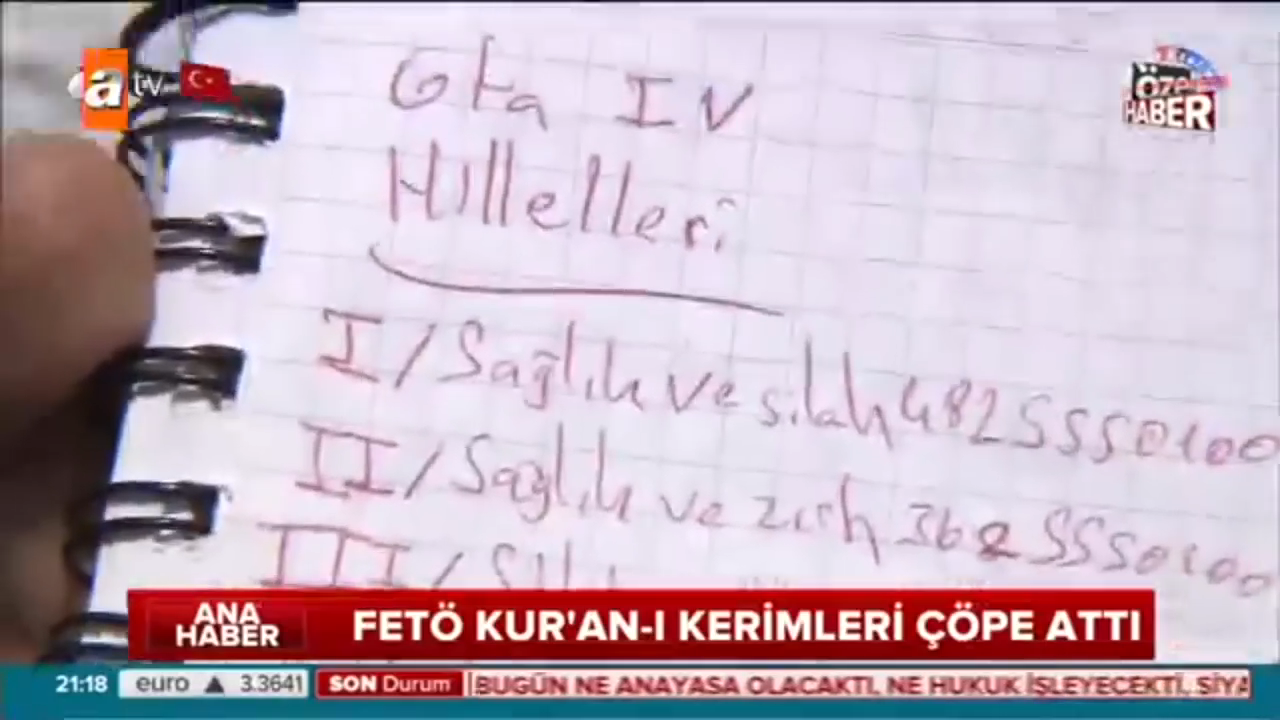 atv
ÖZEL
HABER
Gta IV
Hilleleri
I/Sağlık ve silah 4825550100
II/Sağlık ve zırh 3625550100
III/
ANA
HABER
FETÖ KUR'AN-I KERİMLERİ ÇÖPE ATTI
21:18 euro ▲ 3.3641 SON Durum BUGÜN NE ANAYASA OLACAKTI, NE HUKUK İŞLEYECEKTİ..SİYA